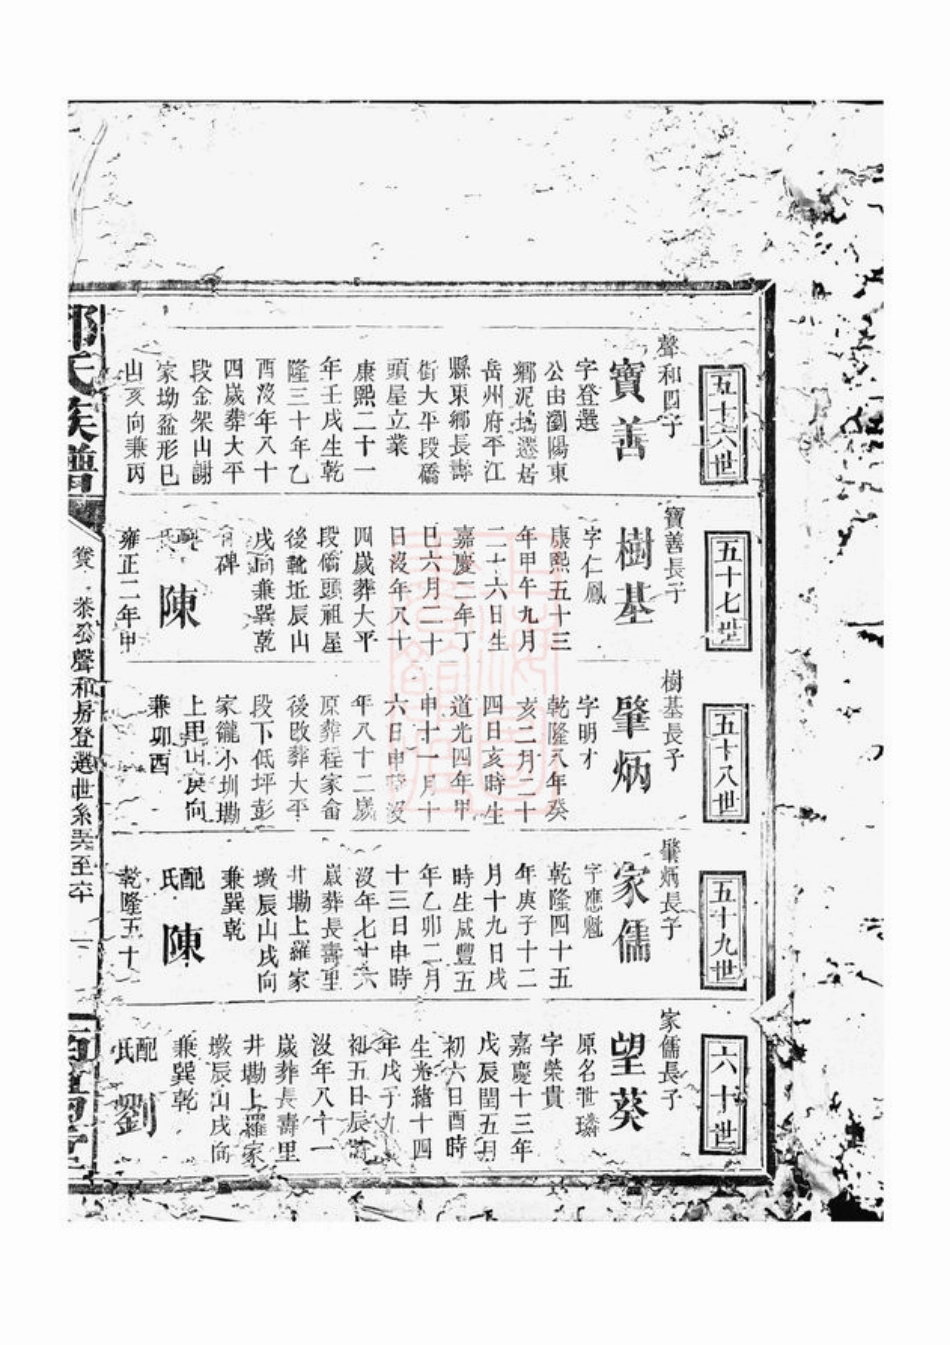 五十六世
聲和四子
寶善
字登選
公由瀏陽東
鄉泥塢遷居
岳州府平江
縣東鄉長壽
街大平段橋
頭屋立業
康熙二十一
年壬戌生乾
隆三十年乙
酉沒年八十
四歲葬大平
段金架山謝
家坳盆形巳
山亥向兼丙
五十七世
寶善長子
樹基
字仁鳳
康熙五十三
年甲午九月
二十六日生
嘉慶二年丁
巳六月二十
日沒年八十
四歲葬大平
段橋頭祖屋
後靴坵辰山
戌向兼巽乾
有碑
配氏 陳
雍正二年甲
五十八世
樹基長子
肇炳
字明才
乾隆八年癸
亥二月二十
四日亥時生
道光四年甲
申十一月十
六日申時沒
年八十二歲
原葬程家侖
後改葬大平
段下低坪彭
家徿小圳墈
上甲山庚向
兼卯酉
五十九世
肇炳長子
家儒
字應魁
乾隆四十五
年庚子十二
月十九日戌
時生咸豐五
年乙卯二月
十三日申時
沒年七十六
歲葬長壽里
井墈上羅家
墩辰山戌向
兼巽乾
配氏 陳
乾隆五十
六十世
家儒長子
望葵
原名世璘
字榮貴
嘉慶十三年
戊辰閏五月
初六日酉時
生光緒十四
年戊子九
初五日辰時
沒年八十一
歲葬長壽里
井墈上羅家
墩辰山戌向
兼巽乾
配氏 劉
氏族譜
聲和房登選世系至六